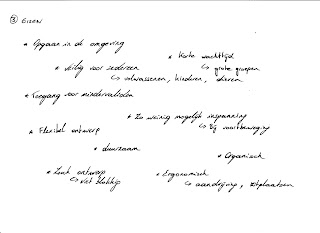 ③ EISEN
* Opgaan in de omgeving
* Korte wachttijd
↳ grote groepen
* Veilig voor iedereen
↳ volwassenen, kinderen, dieren
* Toegang voor mindervaliden
* Zo weinig mogelijk inspanning
↳ Bij voortbeweging
* Flexibel ontwerp
* duurzaam
* Organisch
* Leuk ontwerp
↳ Niet blokkig
* Ergonomisch
↳ aandrijving, zitplaatsen